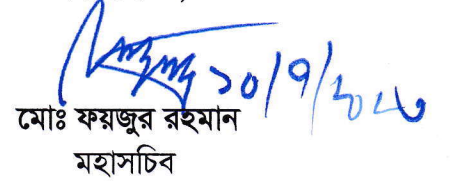 ১০/৭/২০২৩
মোঃ ফয়জুর রহমান
মহাসচিব